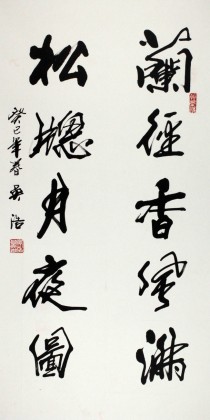 蘭徑香風滿
松牕月夜圓
癸巳年春吳浩